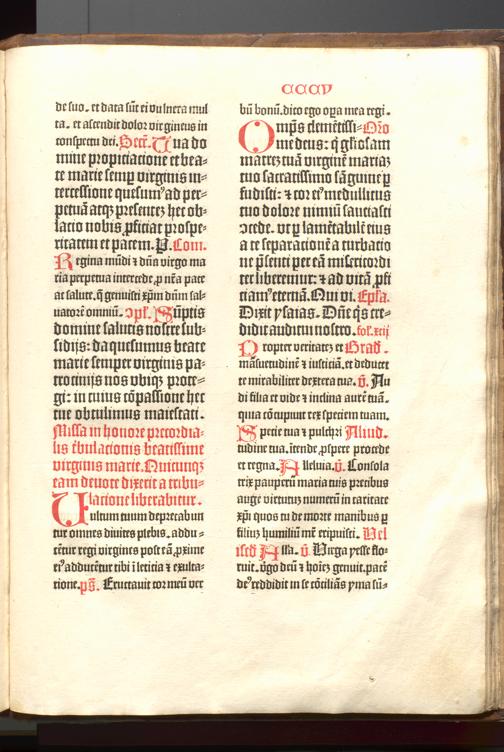 CCCV
de suo. et data sūt ei vulnera mul
ta. et ascendit dolor virgineus in
conspectu dei. Secr̄. Tua do
mine propiciacione et bea-
te marie semp virginis in-
tercessione quesum⁹ ad per-
petuā atqꝫ presentē hec ob-
lacio nobis ꝓficiat prospe-
ritatem et pacem. P. Com.
Regina mūdi ⁊ dn̄a virgo ma
ria perpetua intercede ꝓ nr̄a pace
ac salute. q̄ genuisti xp̄m dn̄m sal-
uatorē omniū. ꝯpl. Sūptis
domine salutis nostre sub-
sidijs: da quesumus beate
marie semper virginis pa-
trocinijs nos vbiqꝫ prote-
gi: in cuius cōpassione hec
tue obtulimus maiestati.
Missa in honore precordia-
lis t̄bulacionis beatissime
virginis marie. Quicunqꝫ
eam deuote dixerit a tribu-
lacione liberabitur.
Vultum tuum deprecabun
tur omnes diuites plebis. addu-
cētur regi virgines post eā ꝓxime
ei⁹ adducētur tibi ī leticia ⁊ exulta-
tione. pȝ. Eructauit cor meū ver
bū bonū. dico ego oꝑa mea regi.
Omp̄s clemētissi- Oro
me deus: q̄ gl̓iosam
matrē tuā virginē mariā
tuo sacratissimo sāguine ꝑ
fudisti: ⁊ cor ei⁹ medullitus
tuo dolore nimiū sauciasti
ꝯcede. vt ꝑ lamētabilē eius
a te separacionē a turbatio
ne p̄senti per eā misericordi
ter liberemur: ⁊ ad vitā ꝓfi
ciam⁹ eternā. Qui vi. Epl̓a.
Dixit ysaias. Dn̄e q̓s cre-
didit auditui nostro. fol. xcij
Propter veritatē et Grad.
māsuetudinē ⁊ iusticiā. et deducet
te mirabiliter dextera tua. v̄. Au
di filia et vide ⁊ inclina aurē tuā.
quia cōcupiuit rex speciem tuam.
Specie tua ⁊ pulchri Aliud.
tudine tua. ītende ꝓspere procede
et regna. Alleluia. v̄. Consola
trix pauperū maria tuis precibus
auge virtutū numerū in caritate
xp̄i quos tu de morte manibus ꝑ
filiū humiliū mē eripuisti. Vel
isc̄d Alla. v̄. Virga yesse flo-
ruit. v̓go deū ⁊ hoīeꝫ genuit. pacē
de⁹ reddidit in se cōciliās yma sū-